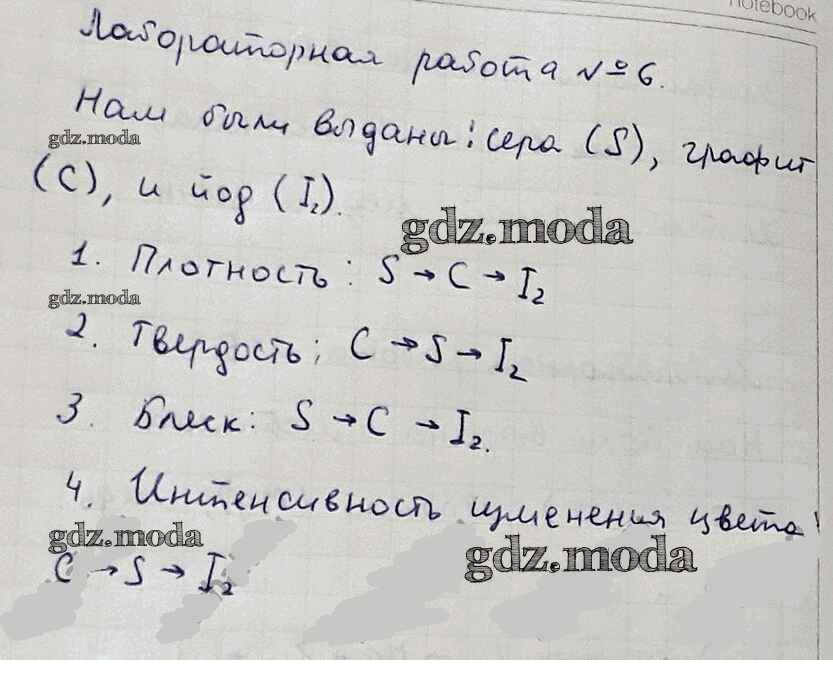 notebook
Лабораторная работа №6.
Нам были выданы: сера (S), графит
gdz.moda
(C), и йод (I₂).
gdz.moda
1. Плотность: S → C → I₂
gdz.moda
2. Твердость: C → S → I₂
3. Блеск: S → C → I₂.
4. Интенсивность изменения цвета:
gdz.moda
gdz.moda
C → S → I₂